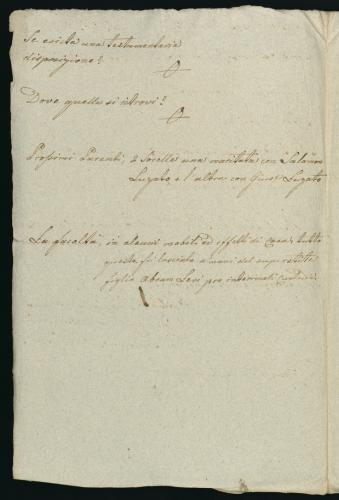 Se esista una testamentaria
disposizione?
O
Dove quella si ritrovi?
O
Prossimi Parenti, 2 Sorelle una maritata con Salamon
Luzato, e l'altra con Luzato
La facoltà, in alcuni mobili ed effetti di Casa, tutto
questo fù lasciato a mani del
figlio Abram Levi pro interinali